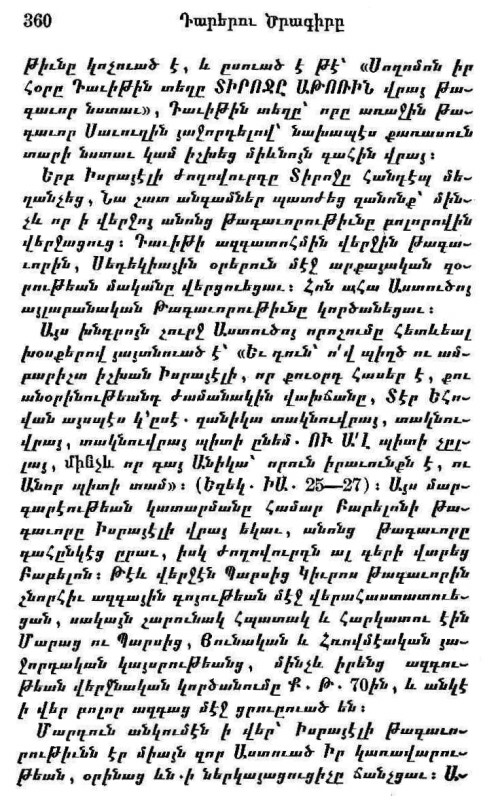 360 Դարերու Ծրագիրը
թիւնը կոչուած է, և ըսուած է թէ՝ «Սողոմոն իր
Հօրը Դաւիթին տեղը ՏԻՐՈՋԸ ԱԹՈՌԻՆ վրայ Թա-
գաւոր նստաւ», Դաւիթին տեղը՝ որը առաջին Թա-
գաւոր Սաւուղին յաջորդելով՝ նախապէս քառասուն
տարի նստաւ կամ իշխեց միևնոյն գահին վրայ։
Երբ Իսրայէլի ժողովուրդը Տիրոջը հանդէպ մե-
ղանչեց, Նա շատ անգամներ պատժեց զանոնք՝ մին-
չև որ ի վերջոյ անոնց Թագաւորութիւնը բոլորովին
վերջացուց։ Դաւիթի ազգատոհմին վերջին Թագա-
ւորին, Սեդեկիային օրերուն մէջ արքայական զօ-
րութեան մականը վերցուեցաւ։ Հոն ահա Աստուծոյ
այլաբանական Թագաւորութիւնը կործանեցաւ։
Այս խնդրոյն շուրջ Աստուծոյ որոշումը հետևեալ
խօսքերով յայտնուած է՝ «Եւ դուն՝ ո՛վ պիղծ ու ամ-
բարիշտ իշխան Իսրայէլի, որ քուօրդ հասեր է, քու
անօրինութեանդ ժամանակին վախճանը, Տէր Եհո-
վան այսպէս կ՚ըսէ· զանիկա տակնուվրայ, տակնու-
վրայ, տակնուվրայ պիտի ընեմ· ՈՒ Ա՛Լ պիտի չըլ-
լայ, մինչև որ գայ Անիկա՝ որուն իրաւունքն է, ու
Անոր պիտի տամ»։ (Եզեկ· ԻԱ· 25—27)։ Այս մար-
գարէութեան կատարմանը համար Բաբելոնի Թա-
գաւորը Իսրայէլի վրայ եկաւ, անոնց Թագաւորը
գահընկէց ըրաւ, իսկ ժողովուրդն ալ գերի վարեց
Բաբելոն։ Թէև վերջէն Պարսից Կիւրոս Թագաւորին
շնորհիւ ազգային գոյութեան մէջ վերահաստատուե-
ցան, սակայն շարունակ հպատակ և հարկատու էին
Մարաց ու Պարսից, Յունական և Հռովմէական յա-
ջորդական կայսրութեանց, մինչև իրենց ազգու-
թեան վերջնական կործանումը Ք· Թ· 70ին, և անկէ
ի վեր բոլոր ազգաց մէջ ցրուրուած են։
Մարդուն անկումէն ի վեր՝ Իսրայէլի Թագաւո-
րութիւնն էր միայն զոր Աստուած Իր կառավարու-
թեան, օրինաց ևն·ի ներկայացուցիչը ճանչցաւ։ Ա-